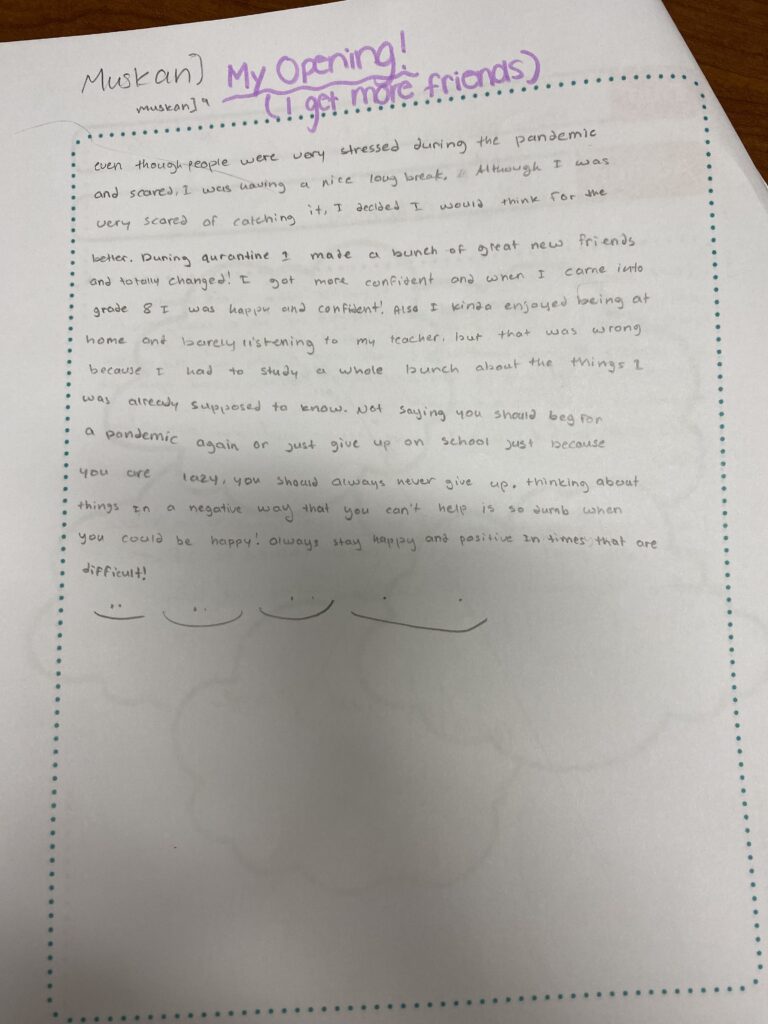 Muskan J My Opening!
muskanJ9 (I get more friends)
even though people were very stressed during the pandemic
and scared, I was having a nice long break. Although I was
very scared of catching it, I decided I would think for the
better. During qurantine I made a bunch of great new friends
and totally changed! I got more confident and when I came into
grade 8 I was happy and confident! Also I kinda enjoyed being at
home and barely listening to my teacher. but that was wrong
because I had to study a whole bunch about the things I
was already supposed to know. Not saying you should beg for
a pandemic again or just give up on school just because
you are lazy, you should always never give up. thinking about
things in a negative way that you can't help is so dumb when
you could be happy! always stay happy and positive in times that are
difficult!